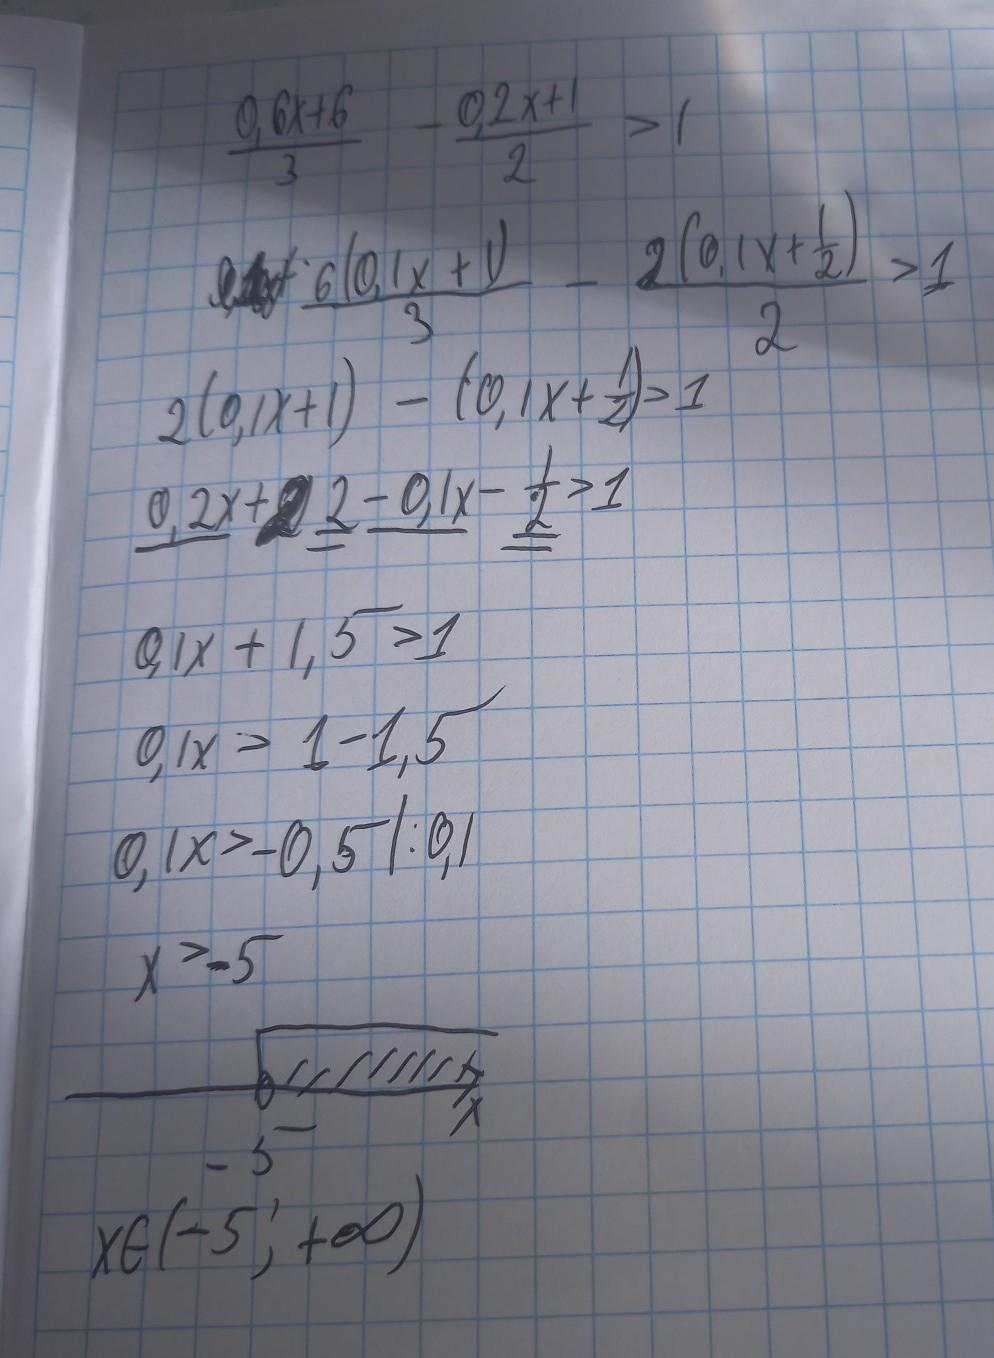 (0,6x+6)/3 - (0,2x+1)/2 > 1
6(0,1x+1)/3 - 2(0,1x+1/2)/2 > 1
2(0,1x+1) - (0,1x+1/2) > 1
0,2x+2-0,1x-1/2>1
0,1x+1,5>1
0,1x>1-1,5
0,1x>-0,5 |:0,1
x>-5
x
-5
x∈(-5; +∞)